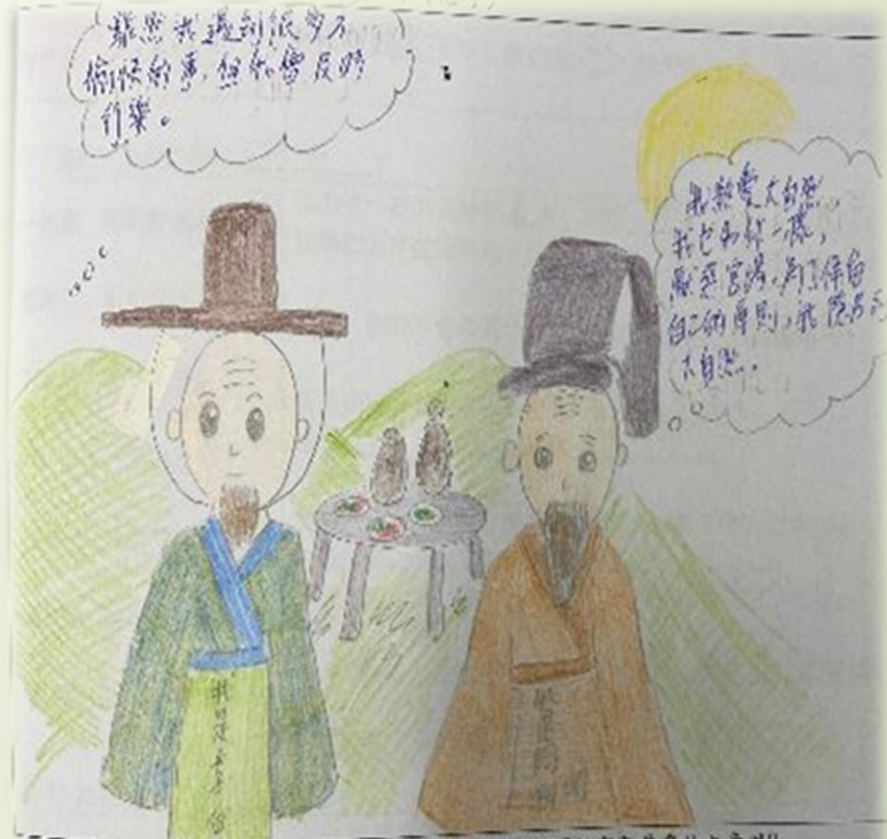 雖然我遇到很多不
愉快的事，但我會及時
行樂。
我熱愛大自然，
我也和你一樣，
厭惡官場，為了保留
自己的原則，我隱居
大自然。
我是